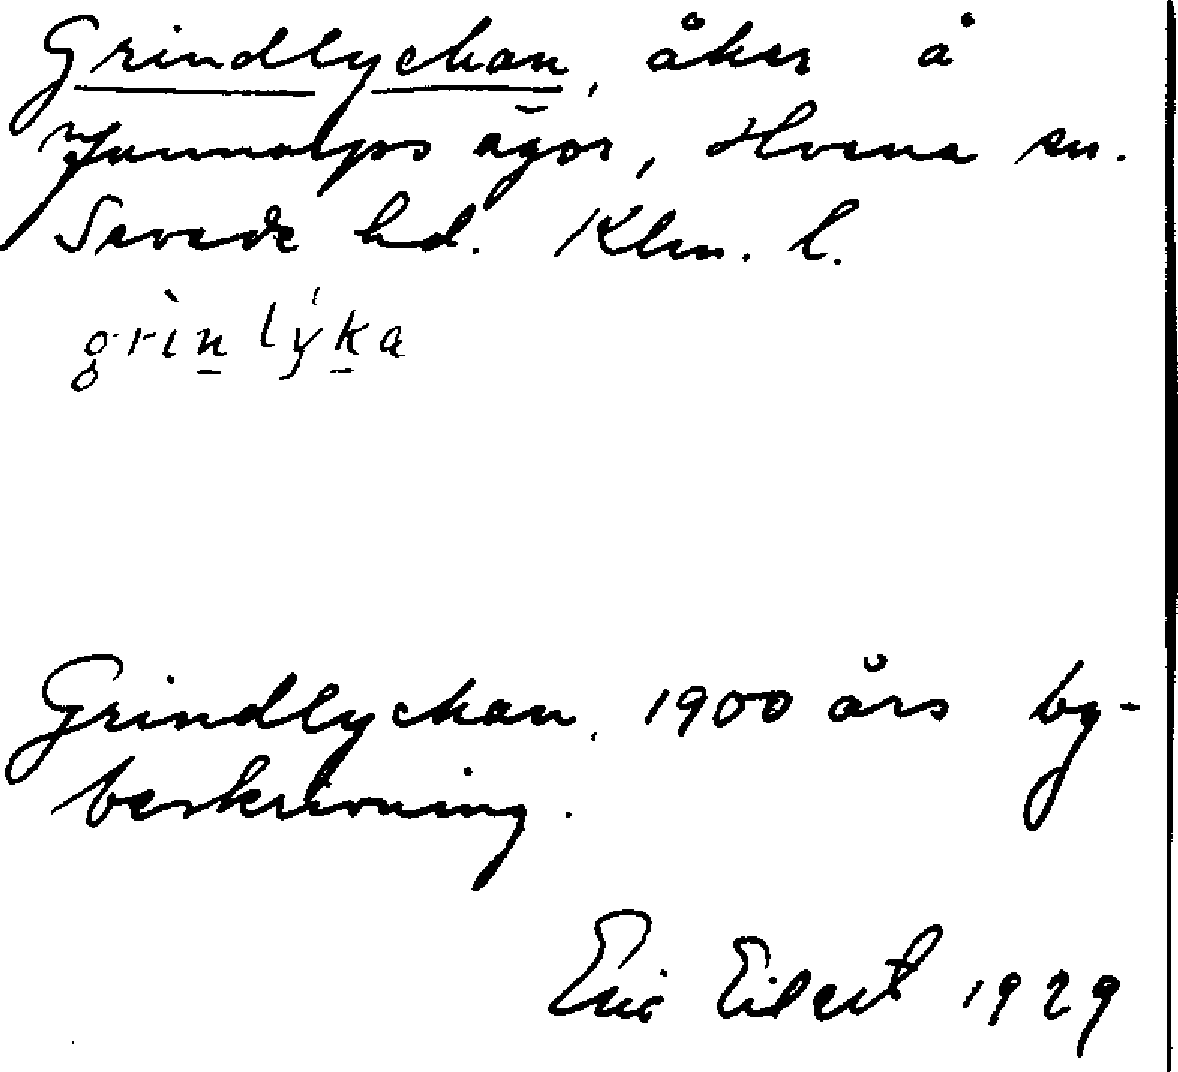 Grindlyckan, åker å
Gunnarps ägor, Hvena sn.
Sevede hd. Klm. l.
grìnlýka
Grindlyckan, 1900 års by-
beskrivning.
Eric Eilert 1929